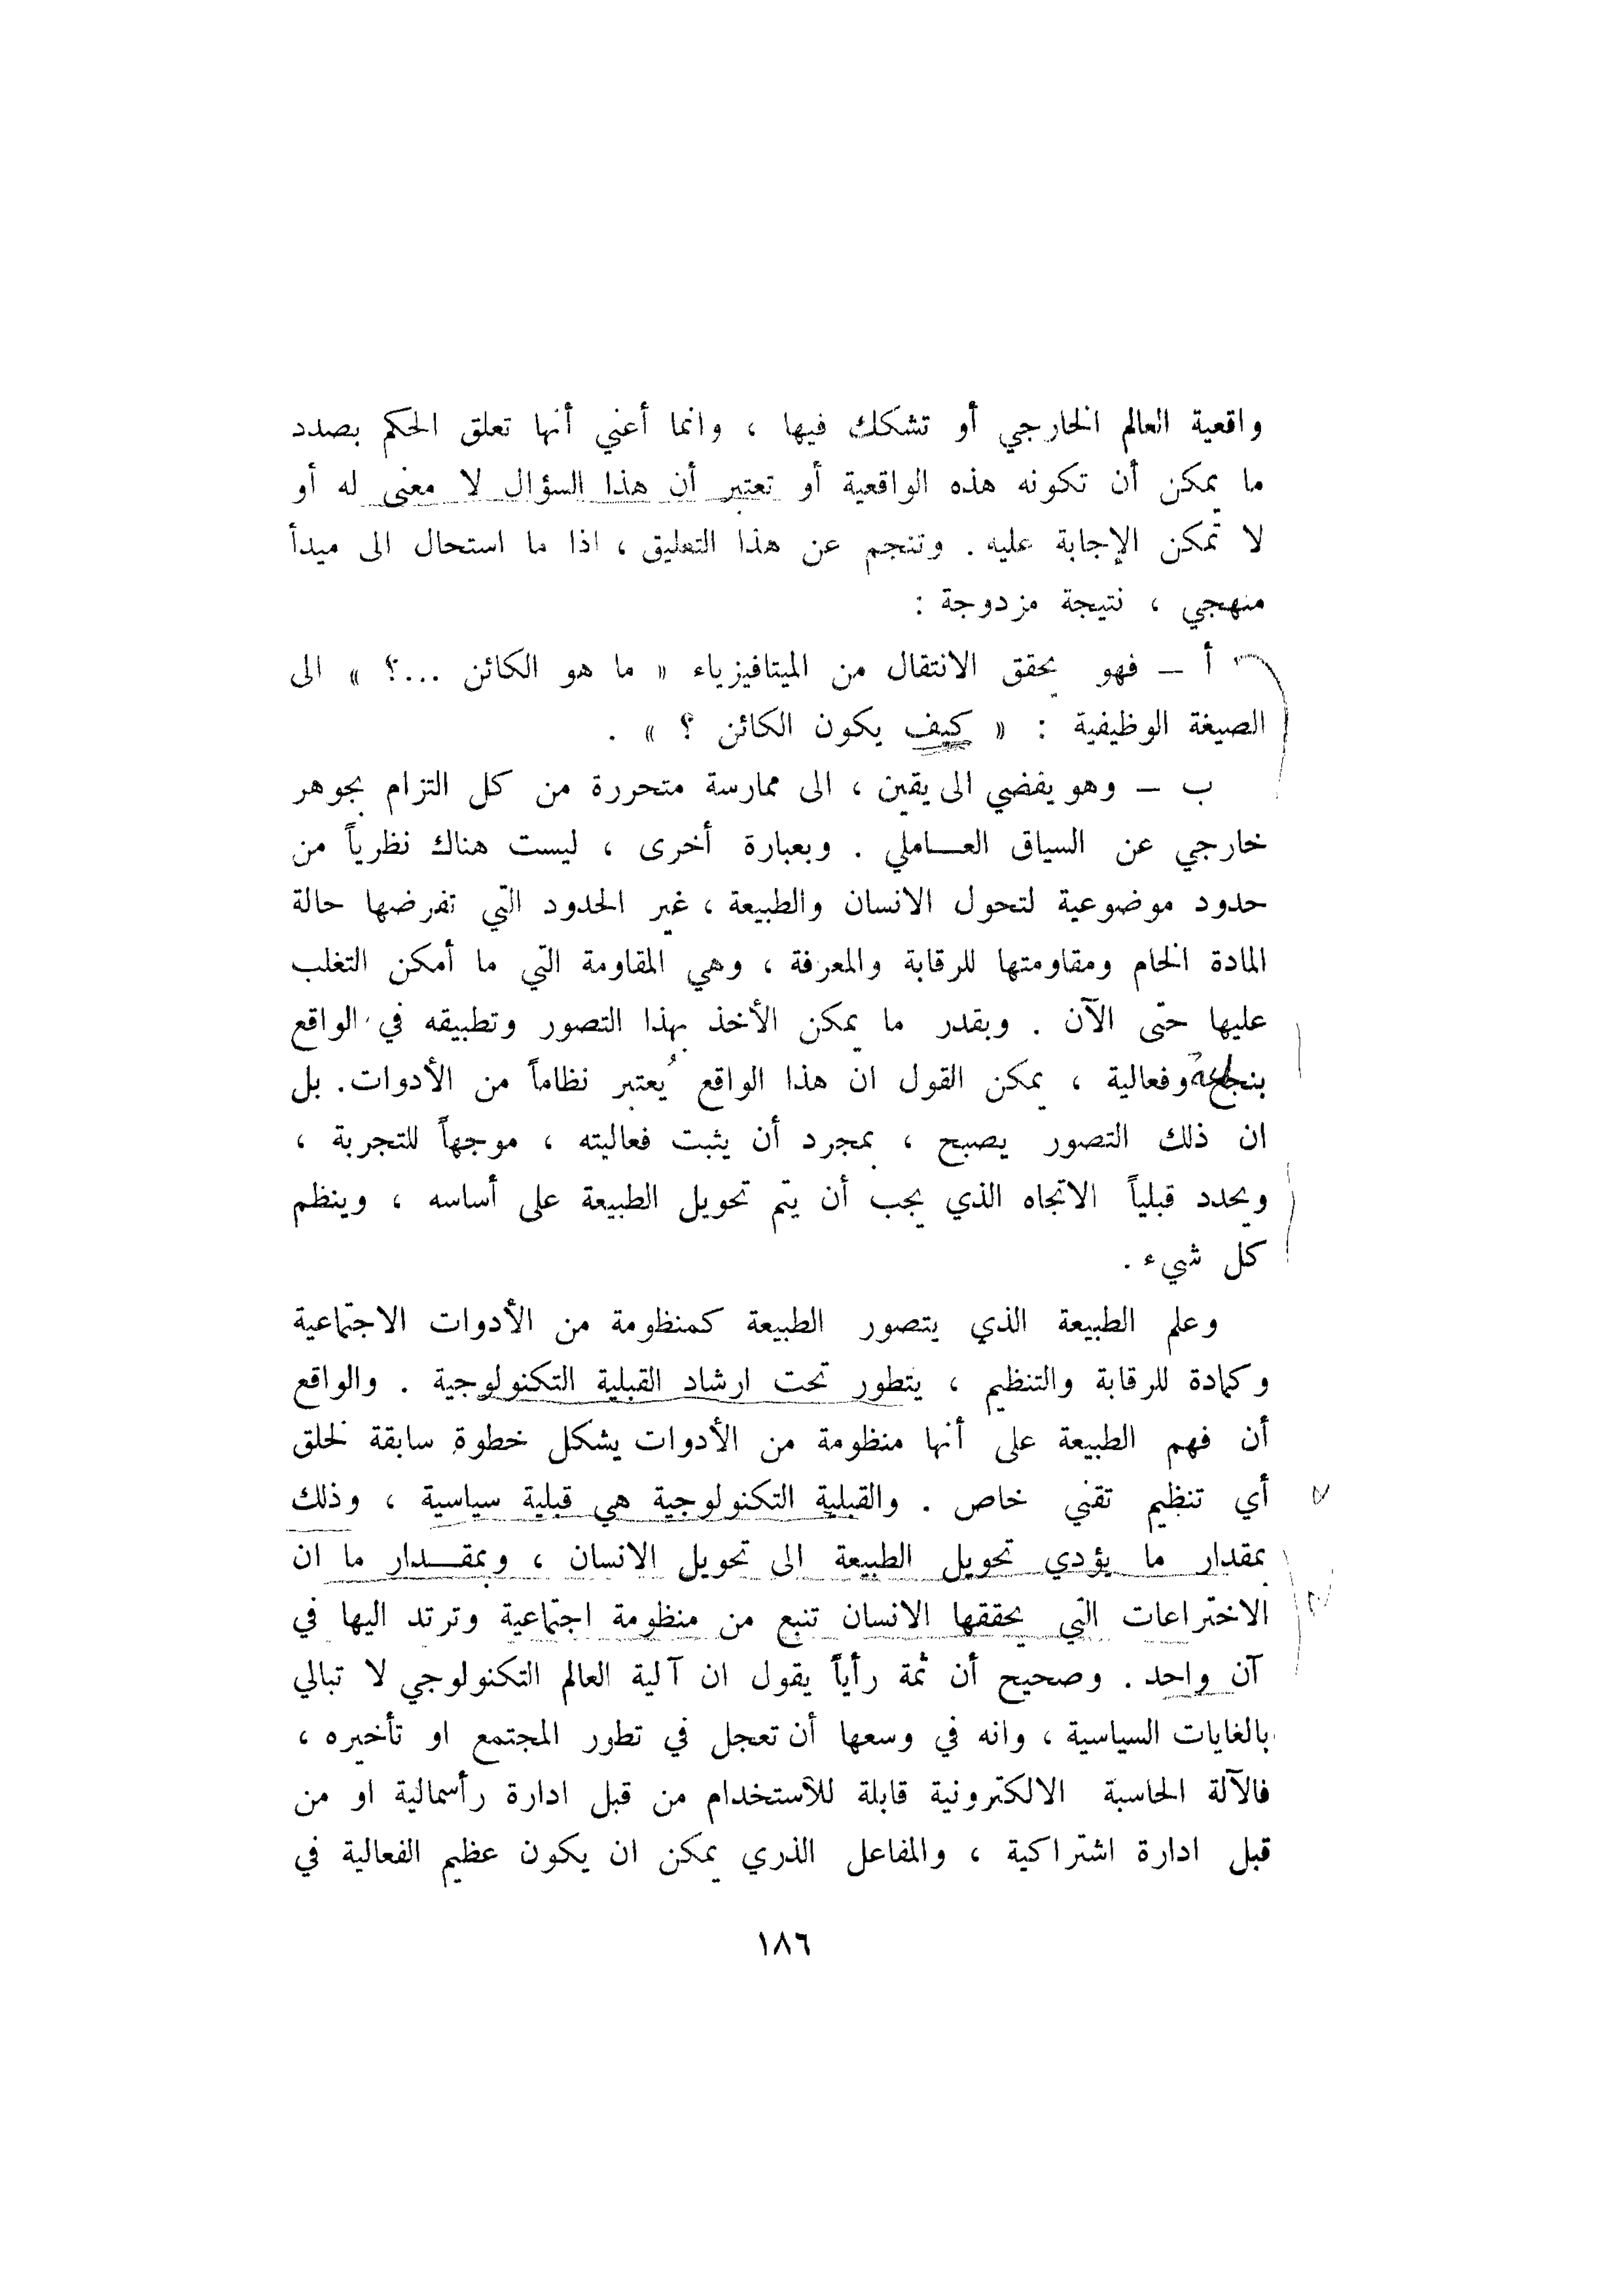 واقعية العالم الخارجي أو تشكك فيها ، وانما أعني أنها تعلق الحكم بصدد
ما يمكن أن تكونه هذه الواقعية أو تعتبر أن هذا السؤال لا معنى له أو
لا تمكن الإجابة عليه . وتنجم عن هذا التعليق ، اذا ما استحال الى مبدأ
منهجي ، نتيجة مزدوجة :
أ – فهو يحقق الانتقال من الميتافيزياء « ما هو الكائن ...؟ » الى
الصيغة الوظيفية : « كيف يكون الكائن ؟ » .
ب – وهو يفضي الى يقين ، الى ممارسة متحررة من كل التزام بجوهر
خارجي عن السياق العـــاملي . وبعبارة أخرى ، ليست هناك نظرياً من
حدود موضوعية لتحول الانسان والطبيعة ، غير الحدود التي تفرضها حالة
المادة الخام ومقاومتها للرقابة والمعرفة ، وهي المقاومة التي ما أمكن التغلب
عليها حتى الآن . وبقدر ما يمكن الأخذ بهذا التصور وتطبيقه في الواقع
وفعالية ، يمكن القول ان هذا الواقع يُعتبر نظاماً من الأدوات. بل
ان ذلك التصور يصبح ، بمجرد أن يثبت فعاليته ، موجهاً للتجربة ،
ويحدد قبلياً الاتجاه الذي يجب أن يتم تحويل الطبيعة على أساسه ، وينظم
كل شيء .
وعلم الطبيعة الذي يتصور الطبيعة كمنظومة من الأدوات الاجتماعية
وكمادة للرقابة والتنظيم ، يتطور تحت ارشاد القبلية التكنولوجية . والواقع
أن فهم الطبيعة على أنها منظومة من الأدوات يشكل خطوة سابقة لخلق
أي تنظيم تقني خاص . والقبلية التكنولوجية هي قبلية سياسية ، وذلك
بمقدار ما يؤدي تحويل الطبيعة الى تحويل الانسان ، وبمقـــدار ما ان
الاختراعات التي يحققها الانسان تنبع من منظومة اجتماعية وترتد اليها في
آن واحد . وصحيح أن ثمة رأياً يقول ان آلية العالم التكنولوجي لا تبالي
بالغايات السياسية ، وانه في وسعها أن تعجل في تطور المجتمع او تأخيره ،
فالآلة الحاسبة الالكترونية قابلة للاستخدام من قبل ادارة رأسمالية او من
قبل ادارة اشتراكية ، والمفاعل الذري يمكن ان يكون عظيم الفعالية في
١٨٦